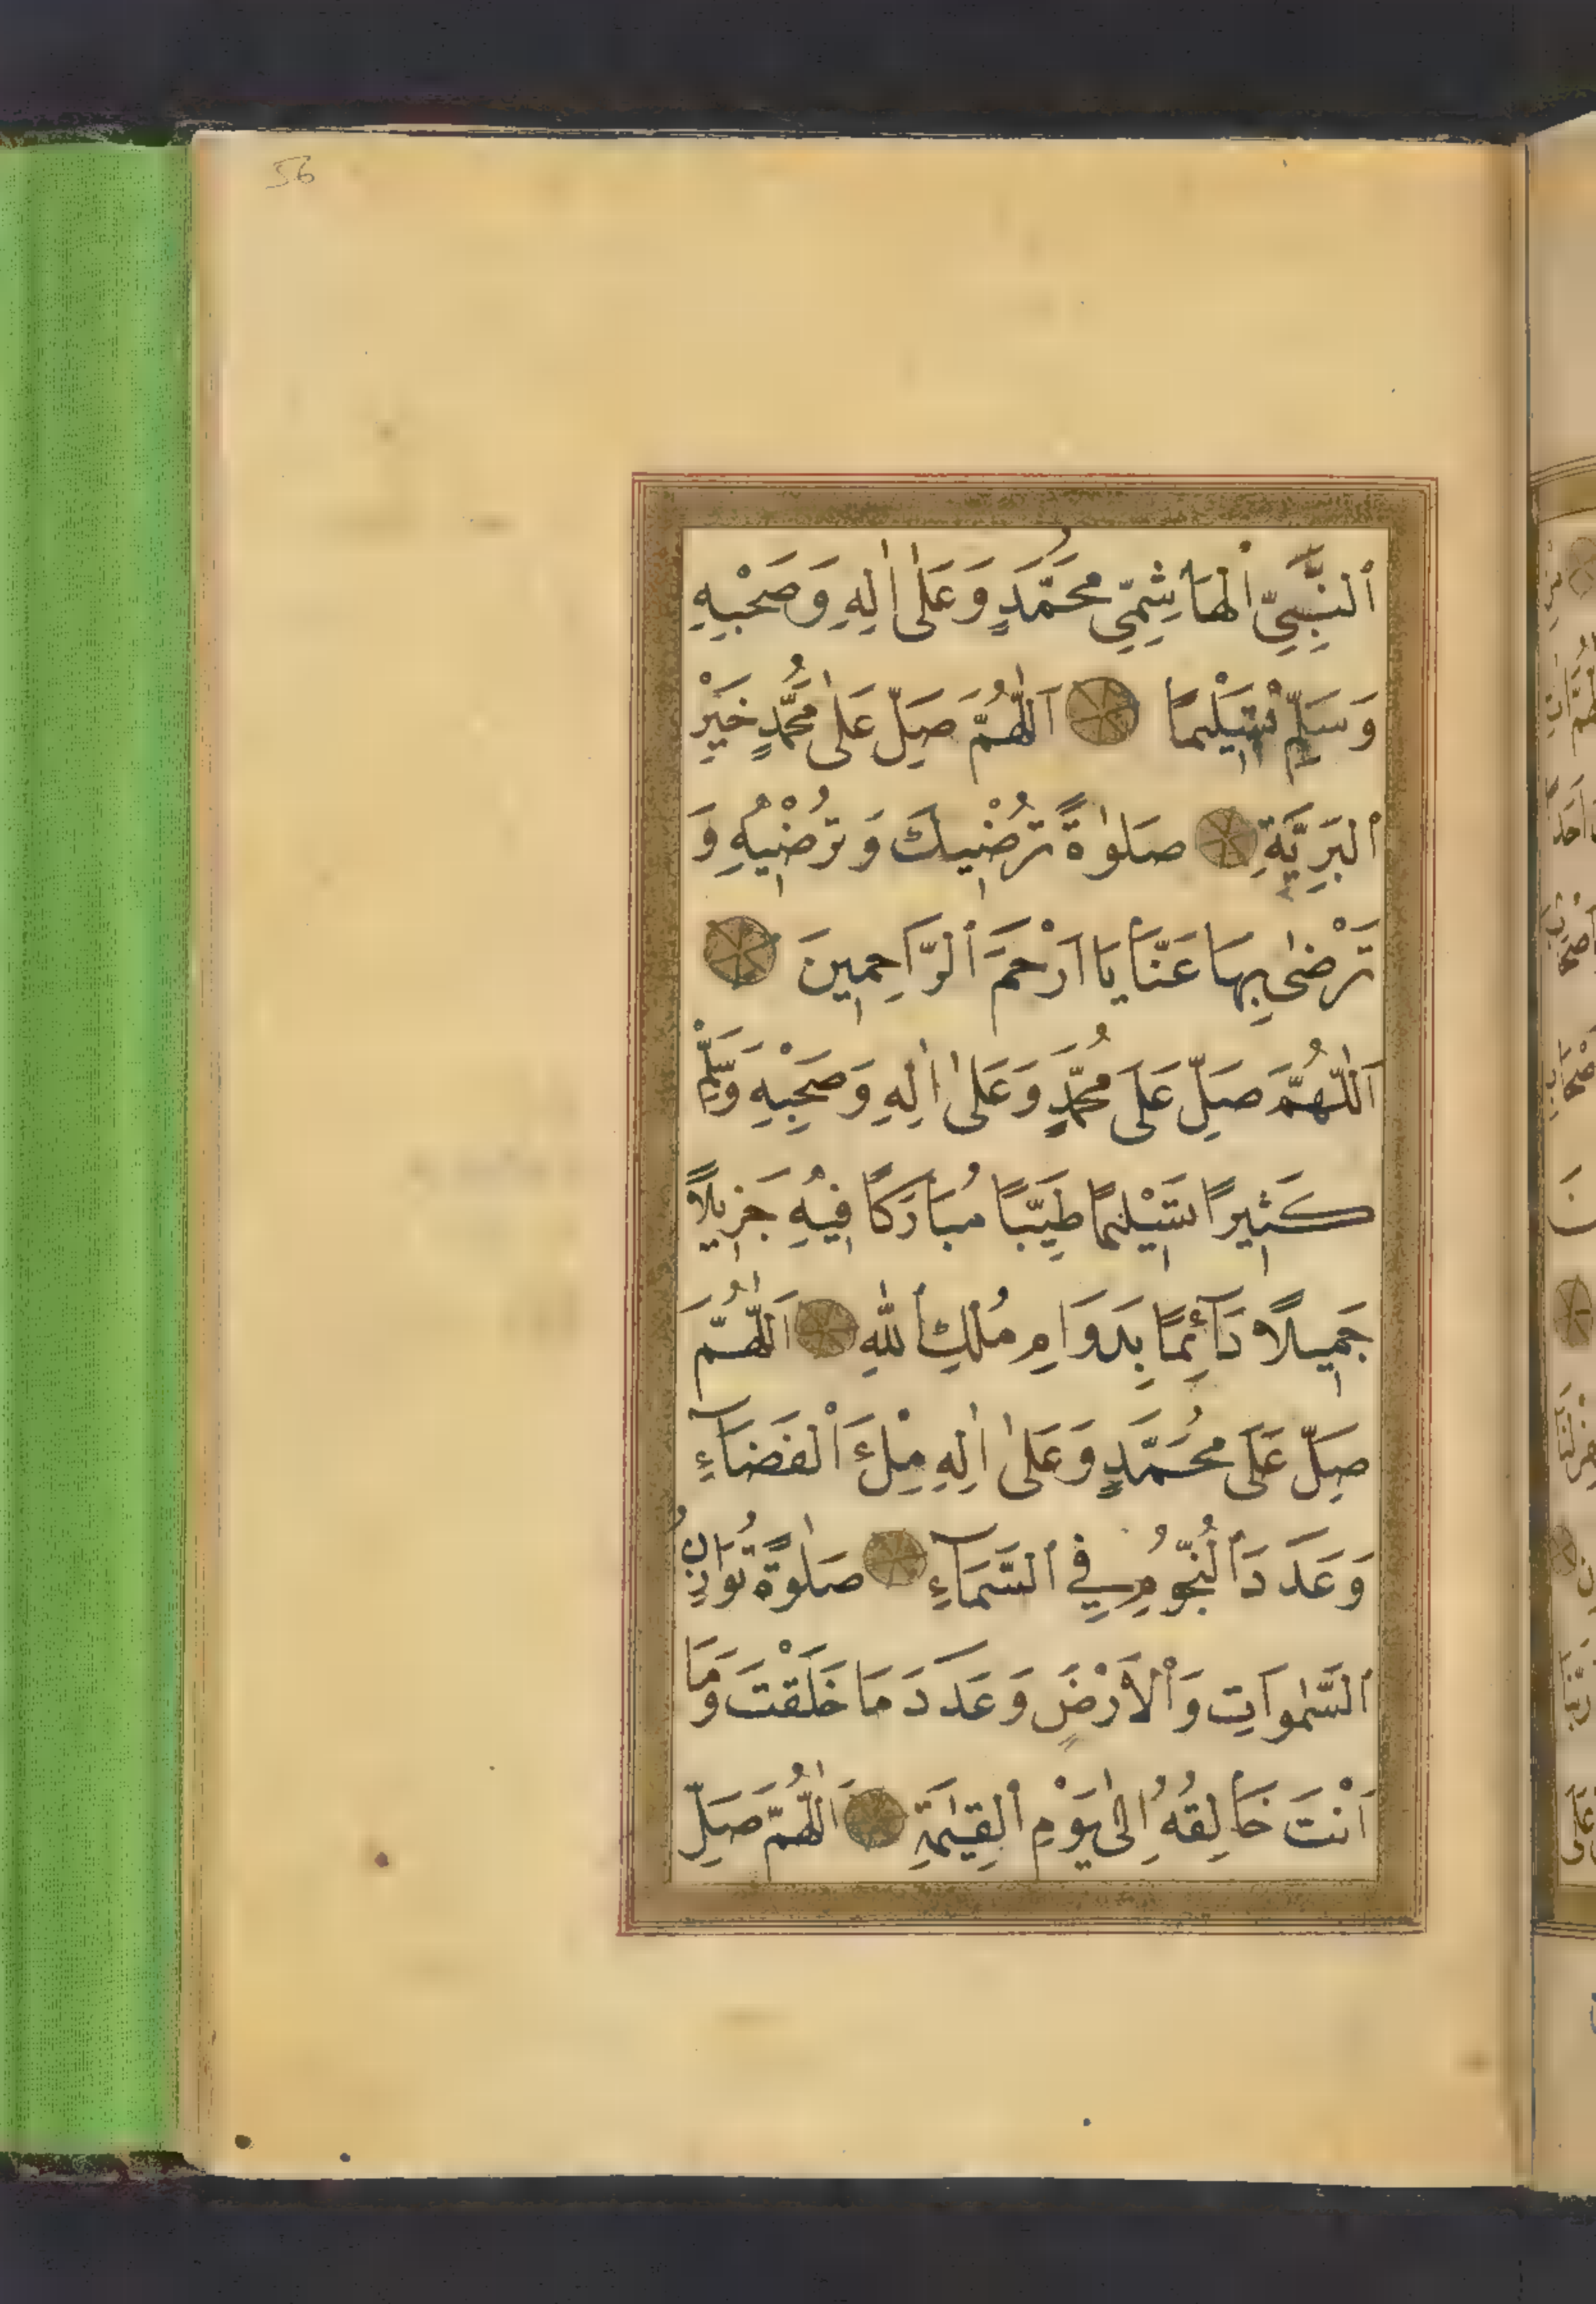 56
اَلنَّبِيِّ الْهَاشِمِيِّ مُحَمَّدٍ وَعَلٰى اٰلِهِ وَصَحْبِهِ
وَسَلِّمْ تَسْلِيْمًا اَللّٰهُمَّ صَلِّ عَلٰى مُحَمَّدٍ خَيْرِ
الْبَرِيَّةِ صَلٰوةً تُرْضِيكَ وَتُرْضِيْهِ وَ
تَرْضٰى بِهَا عَنَّا يَا اَرْحَمَ الرَّاحِمِينَ
اَللّٰهُمَّ صَلِّ عَلَى مُحَمَّدٍ وَعَلٰى اٰلِهِ وَصَحْبِهِ وَسَلِّمْ
كَثِيرًا تَسْلِيْمًا طَيِّبًا مُبَارَكًا فِيْهِ جَزِيلًا
جَمِيلًا دَآئِمًا بِدَوَامِ مُلْكِ اللهِ اَللّٰهُمَّ
صَلِّ عَلَى مُحَمَّدٍ وَعَلٰى اٰلِهِ مِلْءَ الْفَضَآءِ
وَعَدَدَ النُّجُومِ فِي السَّمَآءِ صَلٰوةً تُوَازِنُ
السَّمٰوَاتِ وَالْاَرْضَ وَعَدَدَ مَا خَلَقْتَ وَمَا
اَنْتَ خَالِقُهُ اِلٰى يَوْمِ الْقِيٰمَةِ اَللّٰهُمَّ صَلِّ